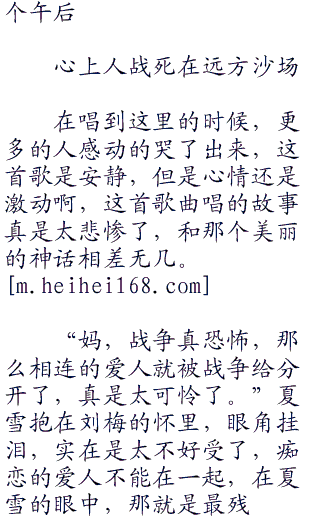 个午后
心上人战死在远方沙场
在唱到这里的时候，更
多的人感动的哭了出来，这
首歌是安静，但是心情还是
激动啊，这首歌曲唱的故事
真是太悲惨了，和那个美丽
的神话相差无几。
[m.heihei168.com]
“妈，战争真恐怖，那
么相连的爱人就被战争给分
开了，真是太可怜了。”夏
雪抱在刘梅的怀里，眼角挂
泪，实在是太不好受了，痴
恋的爱人不能在一起，在夏
雪的眼中，那就是最残